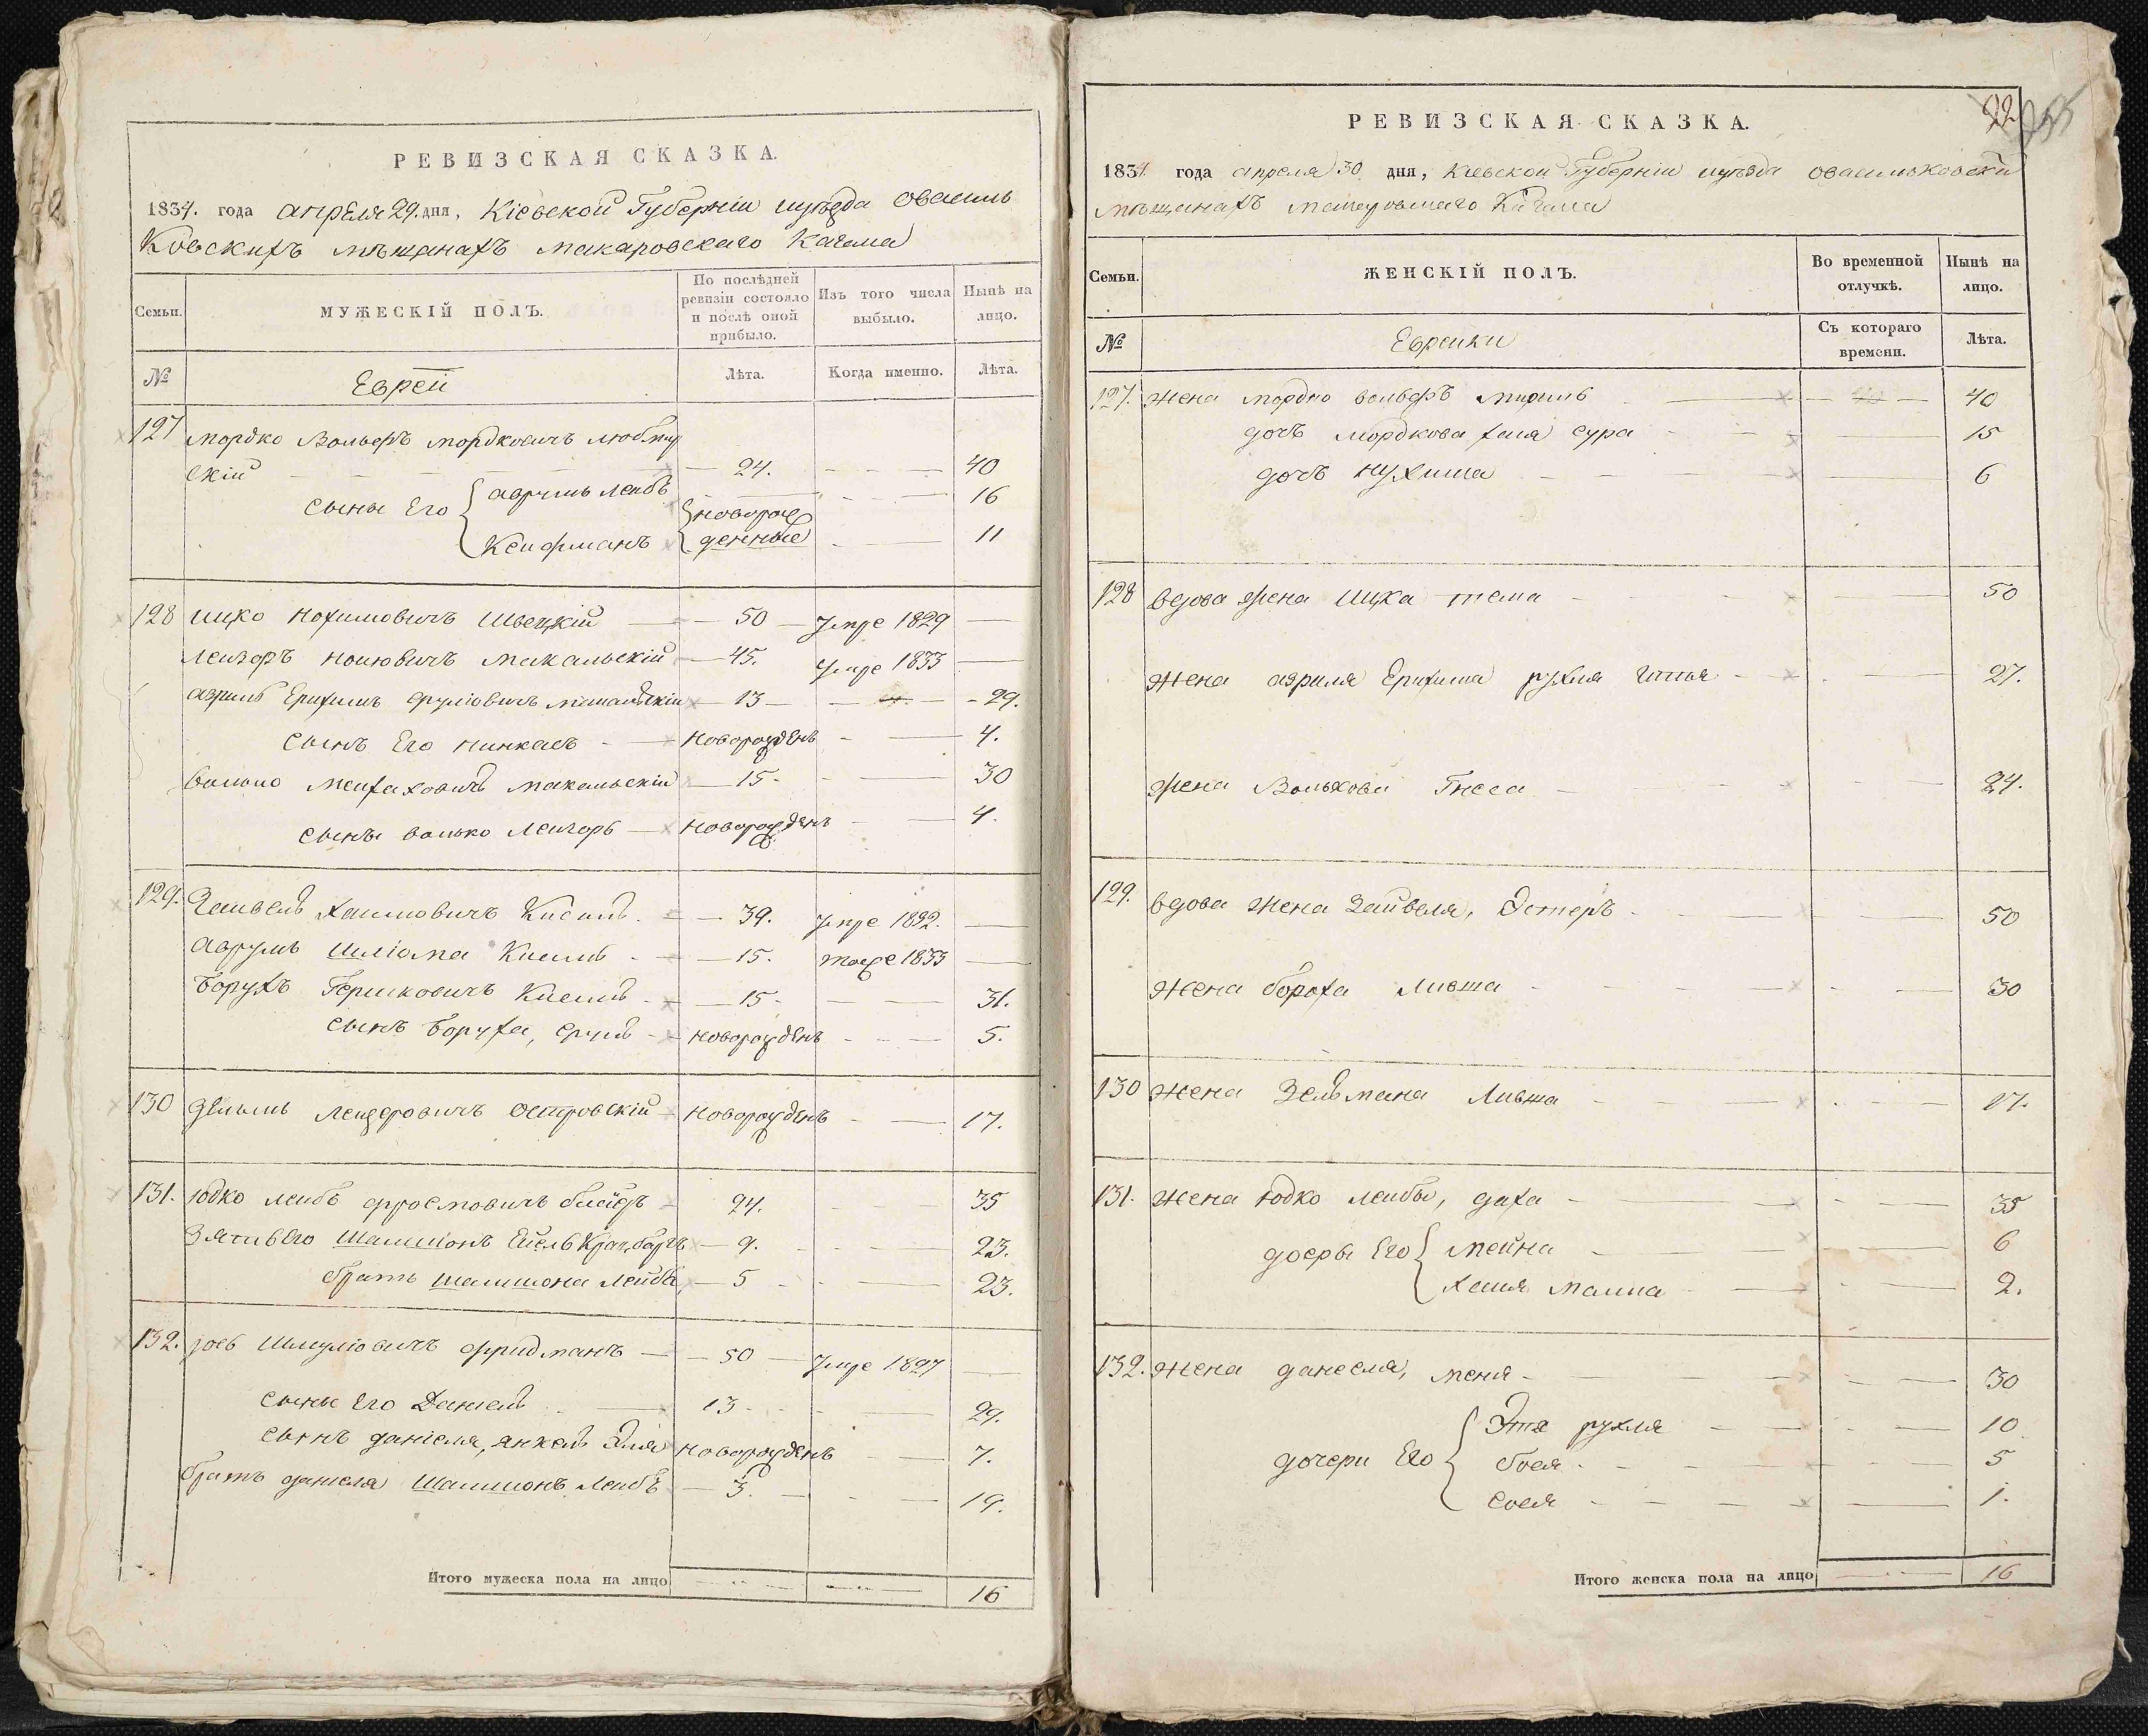 РЕВИЗСКАЯ СКАЗКА.
1834. года апреля 29. дня, Кіевской Губерніи уѣзда Овасиль
Ковскихъ мѣщанахъ макаровскаго Кагала
Семьи.
МУЖЕСКІЙ ПОЛЪ.
По послѣдней ревизіи состояло и послѣ оной прибыло.
Изъ того числа выбыло.
Нынѣ на лицо.
№
Еврей
Лѣта.
Когда именно.
Лѣта.
127 мордко Вольфъ мордковичъ
скій 24. 40
сыны Его аврумъ лейбъ 16
Кейфманъ новорож денные 11
128 ицко Нохимовичъ Швецкій 50 Умре 1829
Лейзоръ макальскій 45. Умре 1833
азриль Ерихимъ сруліовичъ 13 29.
сынъ Его пинкасъ Новорожденъ 4.
Волько макальскій 15. 30
сынъ волько Лейзоръ Новорожденъ 4.
129. Зейвель Хаимовичъ Кисиль. 39. Умре 1832.
Аврумъ Шліома Кисиль 15. тоже 1833
Борухъ Гершковичъ Кисиль 15. 31.
сынъ Боруха, сруль новорожденъ 5.
130 Лейзеровичъ Островскій Новорожденъ 17.
131. Юдко лейбъ 24. 35
Зять Его Шамшонъ 9. 23.
братъ шамшона Лейба 5 23.
132. Шмуліовичъ фридманъ 50 Умре 1827
сыны Его Даніель 13 29.
сынъ даніеля, янкель Эля новорожденъ 7.
братъ даніеля Шамшонъ Лейбъ 3. 19.
Итого мужеска пола на лицо 16
22
РЕВИЗСКАЯ СКАЗКА.
1834 года апреля 30 дня, Кіевской Губерніи уѣзда Овасильковски
мѣщанахъ Кагала
Семьи.
ЖЕНСКІЙ ПОЛЪ.
Во временной отлучкѣ.
Нынѣ на лицо.
№
Еврейки
Съ котораго времени.
Лѣта.
127. жена мордко вольфъ 40
дочъ мордкова хаія сура 15
дочъ 6
128 вдова жена Ицка 50
жена азриля Ерихима рухля 27.
жена Волькова Гнеса 24.
129. вдова жена Зайвеля, Эстеръ 50
жена бороха Ливша 30
130 жена Зельмана Ливша 17.
131. жена юдко лейбы, 35
дочры Его мейна 6
хаия малка 2.
132. жена данеля, меня 30
дочери Его Этя рухля 10
бося 5
сося 1.
Итого женска пола на лицо 16